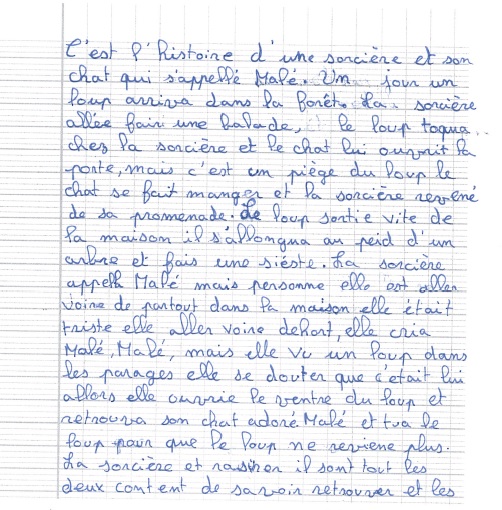 C'est l'histoire d'une sorcière et son
chat qui s'appellé Malé. Un jour un
loup arriva dans la forêt. La sorcière
allée fair une balade, le loup toqua
chez la sorcière et le chat lui ouvrit la
porte, mais c'est un piège du loup le
chat se fait manger et la sorcière revené
de sa promenade. Le loup sortie vite de
la maison il s'allongua au peid d'un
arbre et fais une siéste. La sorcière
appella Malé mais personne elle est aller
voire de partout dans la maison elle était
triste elle aller voire dehort, elle cria
Malé, Malé, mais elle vu un loup dans
les parages elle se douter que c'était lui
allors elle ouvrie le ventre du loup et
retrouva son chat adoré Malé et tua le
loup pour que le loup ne reviene plus.
La sorcière et il sont tout les
deux content de savoir retrouver et les